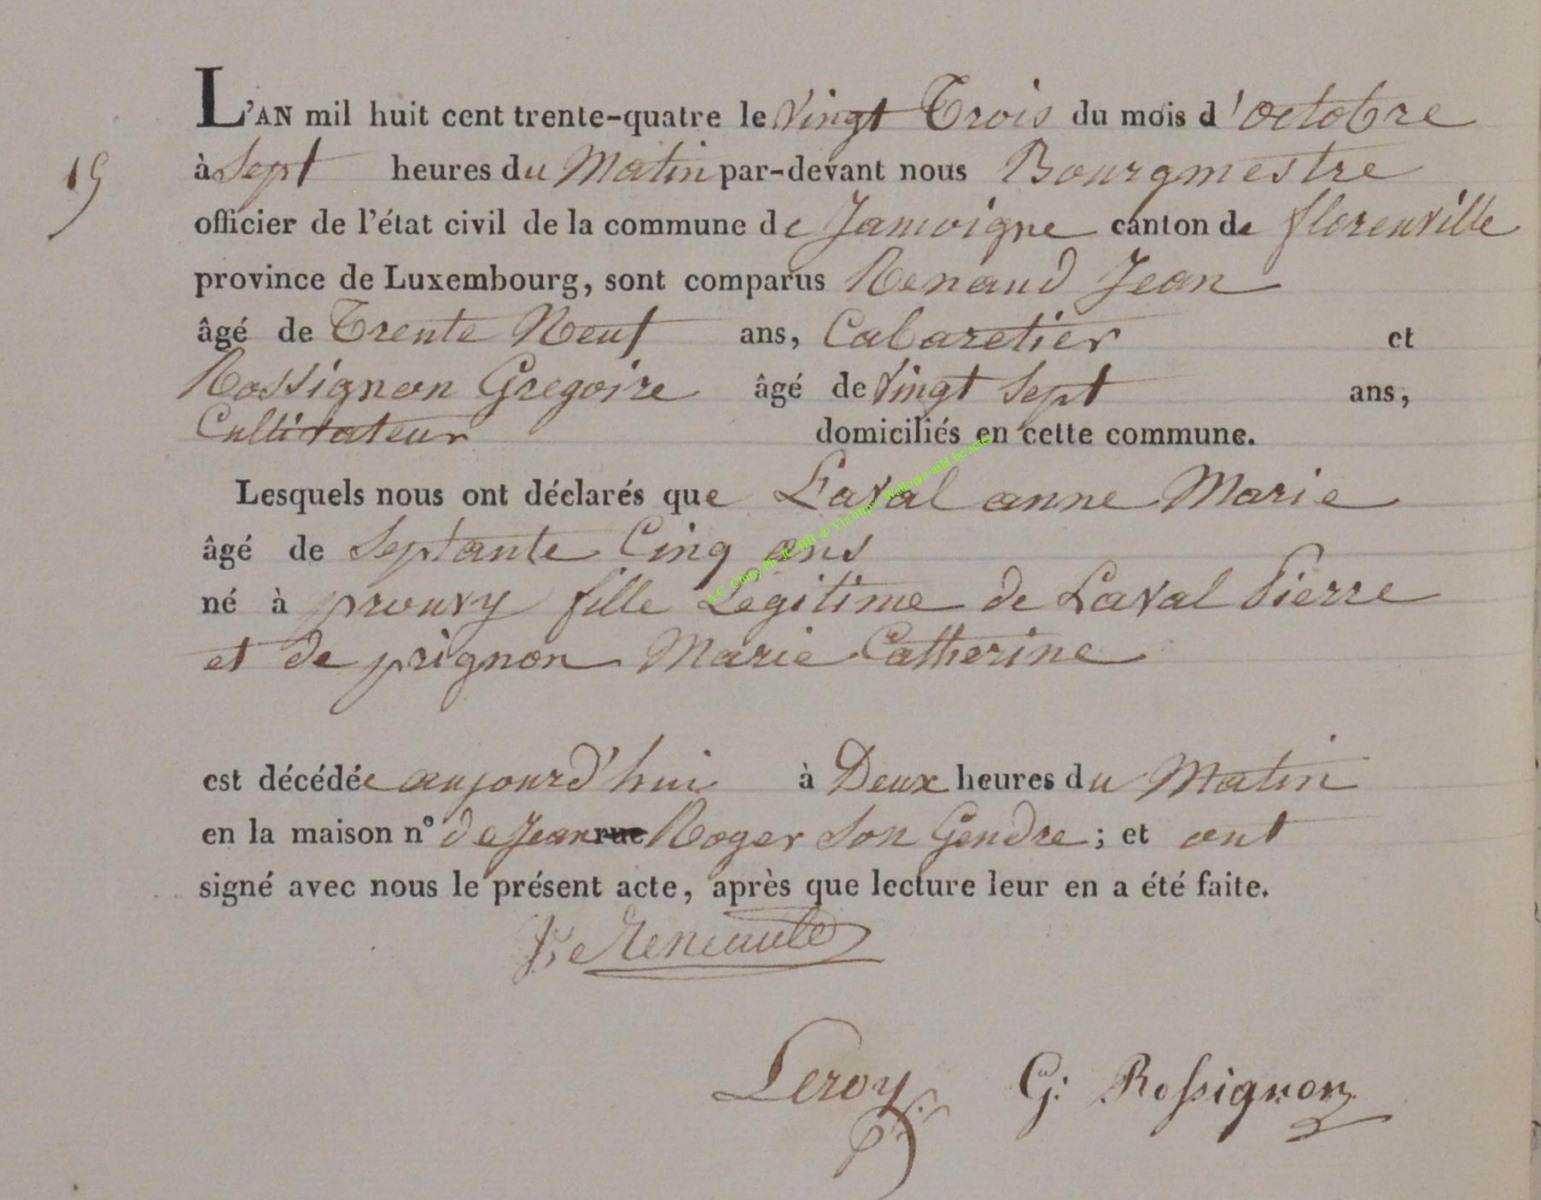 L'AN mil huit cent trente-quatre le Vingt Trois du mois d'octobre
19
à Sept heures du Matin par-devant nous Bourgmestre
officier de l'état civil de la commune de Jamoigne canton de florenville
province de Luxembourg, sont comparus Renaud Jean
âgé de Trente Neuf ans, Cabaretier et
Rossignon Gregoire âgé de Vingt Sept ans,
Cultivateur domiciliés en cette commune.
Lesquels nous ont déclarés que Laval anne Marie
âgé de Septante Cinq ans
né à prouvy fille Légitime de Laval Pierre
et de prignon Marie Catherine
est décédée aujourd'hui à Deux heures du Matin
en la maison n° de Jean rue Roger Son Gendre; et ont
signé avec nous le présent acte, après que lecture leur en a été faite.
Leroy G: Rossignon